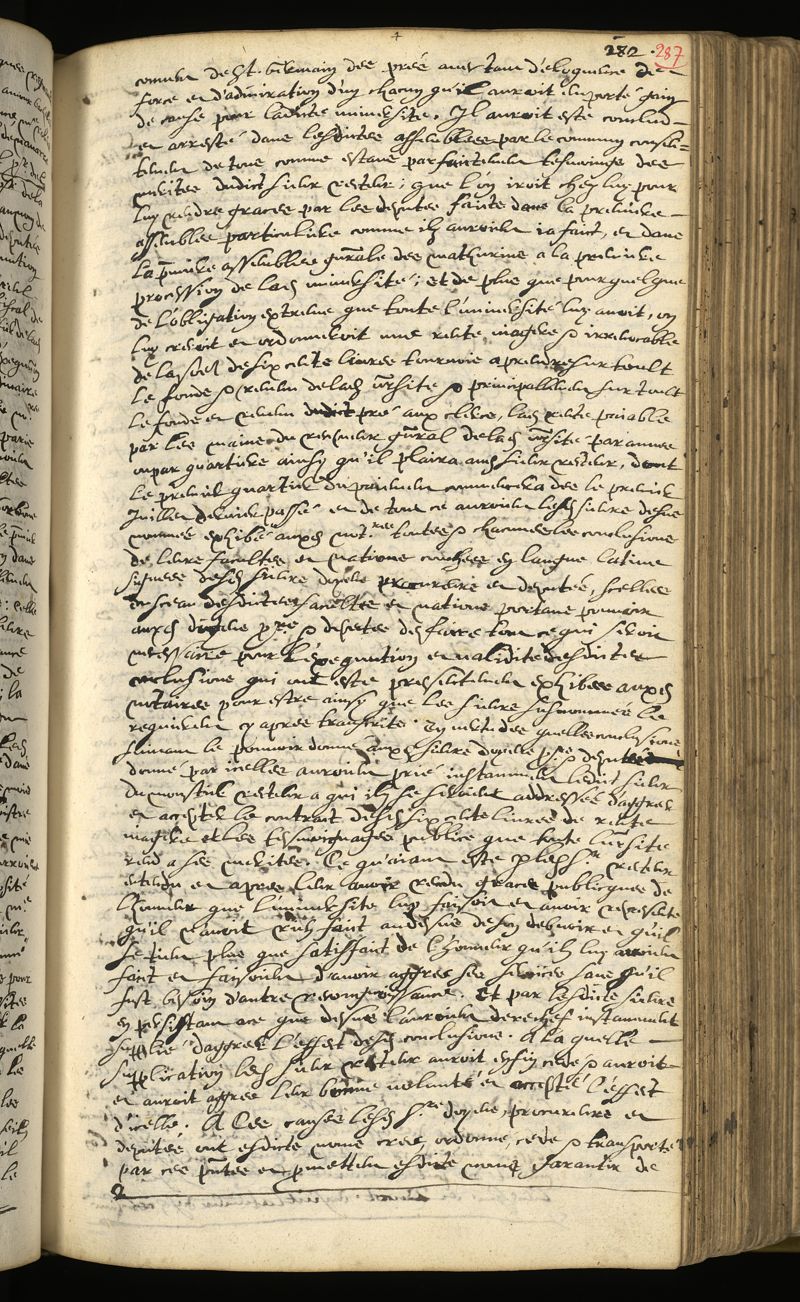 282. 287
convent de St. Germain des prés avec tant d'eloquence de
force et d'admiration d'un chacun qu'il auroit emporté gain
de cause pour ladicte université. Il auroit esté conclud
et arresté dans lesdictes assemblées par le commun consen=
tement de tous comme estans parfaictement tesmoings des
merites dudict sieur recteur; que l'on iroit chez luy pour
luy rendre graces par les deputes faicte dans la premiere
assemblee particuliere comme ilz auroient ja faict, et dans
la pñiere assemblee gñralle des mathurins a la premiere
procession de lad université; et de plus que pour quelque
de l'obligation extreme que toute l'université luy avoit, on
luy creroit et ordonneroit une rente viagere & irrevocable
de la som de six cents livres tournois a prendre sur tout
le fonds & revenu de lad univrsité & principallement sur tout
le fonds et revenu dudict pré aux clercs, lad rente paiable
par les mains du receveur gñral de lad univrsité par année
ou par quartier ainsy qu'il plaira aud sieur recteur, dont
le premier quartier du paiement commencera des le premier
Juillet dernier passé et de tout ce auroient lesd sieurs dessus
nommés exhibé auxd notres touttes & chacunes les conclusions
de leurs facultés et nations couchées en langue latine
signees desd sieurs doyens procureurs et deputés, scellees
du sceau desdictes facultés et nations portans pouvoir
auxd doyens prs & deputes de faire tout ce qui seroit
necessaire pour l'exequution et validité desdictes
conclusions qui ont esté presentement exhibees auxd
notaires pour estre ainsy que les sieurs susnommés le
requierent cy apres transcrites. En vertu desquelles conclusions
suivant le pouvoir donné auxd sieurs doyens prs & deputés
donné par icelles auroient prié instamment ledict sieur
du monstier recteur a qui ilz se seroient addressés d'aggreer
et accepter le contract desd six cents livres de rente
viagere et les tesmoignages publics que toute l'univrsité
rend a ses merites. Ce qu'aiant esté par led sr recteur
entendu et apres leur avoir rendu graces publicques de
l'honneur que l'université luy faisoit et avoir representé
qu'il n'avoit rien faict au dessus de son debvoir et qu'il
se tient plus que satisfaict de l'honneur qu'ilz luy avoient
faict et faisoient d'avoir aggreé ses services sans qu'il
fust besoin d'autre recongnoissance. Et par lesdicts sieurs
en persistant a ce que dessus l'auroient derechef instamment
supplié d'aggreer l'effect desd conclusions. A la quelle
supplication led sieur recteur auroit enfin cedé & auroit
et auroit aggreé leur bonne volunté et accepté l'effect
d'icelle. A ces causes lesd srs doyens, procureurs et
deputes ont esdicts noms creé, ordonné, cedé & transporté
par ces pñtes et promettent esdicts noms garantir de